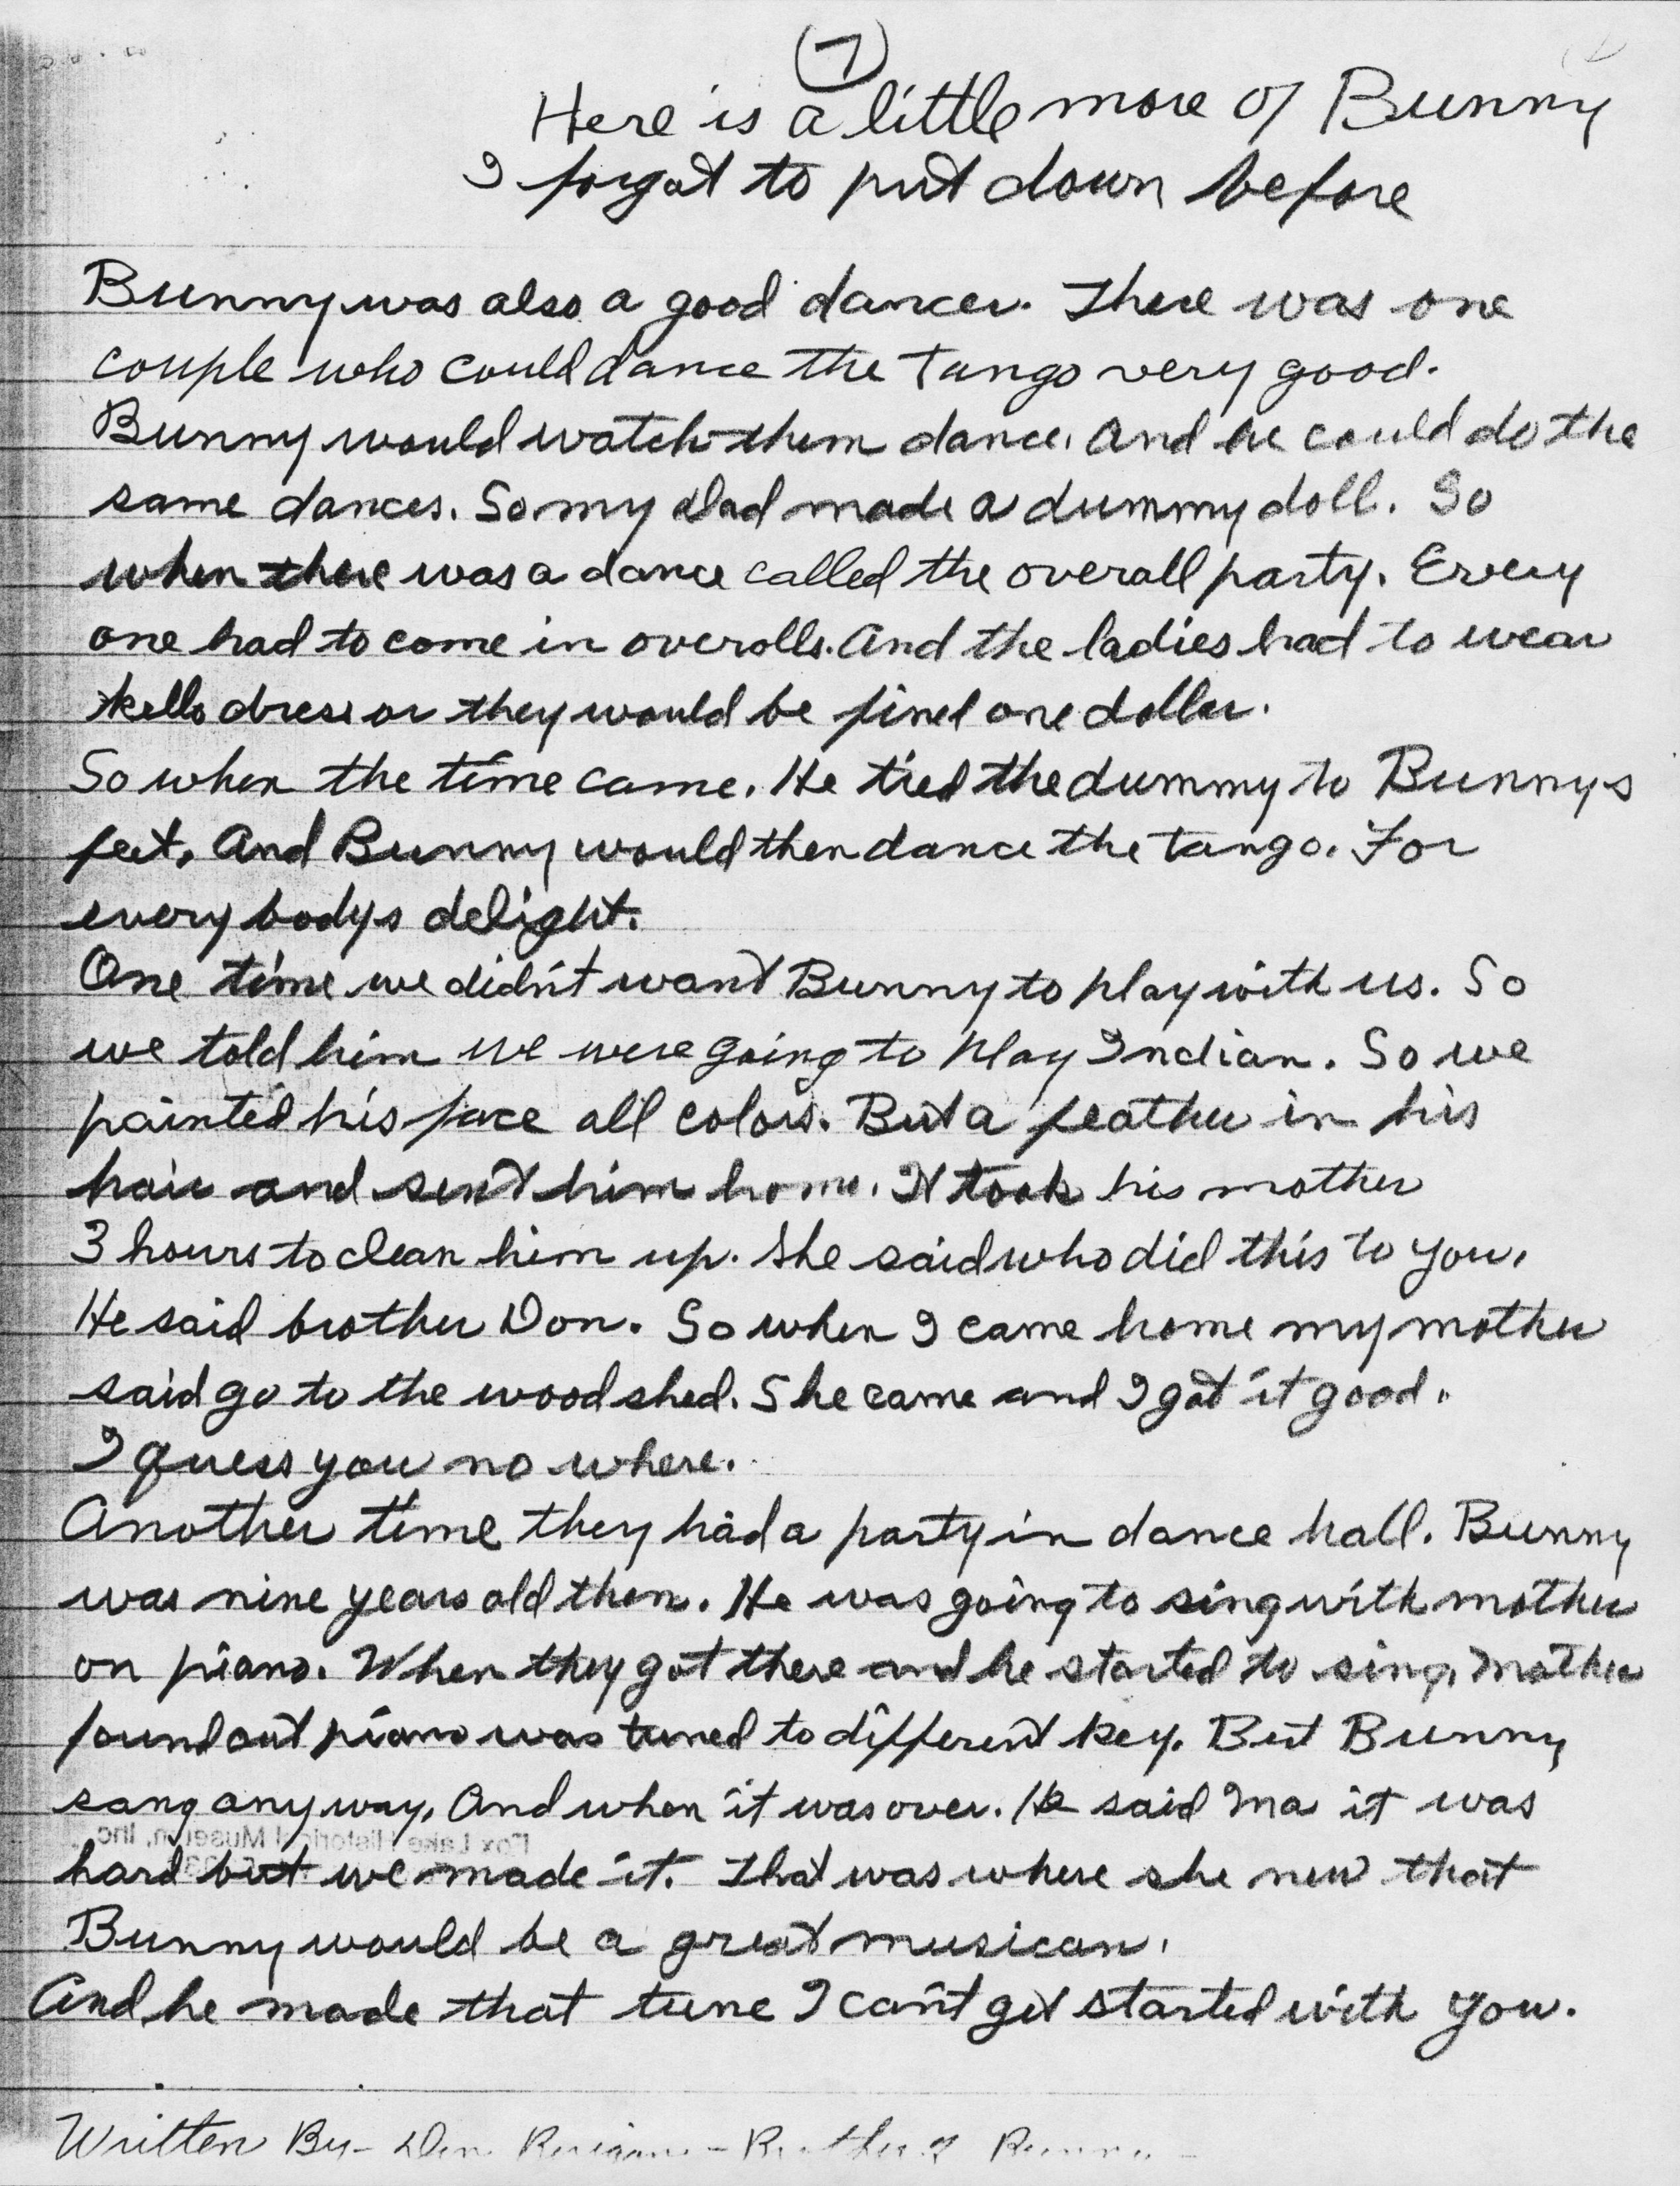 (7)
Here is a little more of Bunny
I forgot to put down before
Bunny was also a good dancer. There was one
couple who could dance the Tango very good.
Bunny would watch them dance. And he could do the
same dances. So my dad made a dummy doll. So
when there was a dance called the overall party. Every
one had to come in overolls. And the ladies had to wear
dress or they would be fined one doller.
So when the time came. He tied the dummy to Bunnys
feet, And Bunny would then dance the tango. For
every bodys delight.
One time we didn't want Bunny to play with us. So
we told him we were going to play Indian. So we
painted his face all colors. But a feather in his
hair and sent him home. It took his mother
3 hours to clean him up. She said who did this to you.
He said brother Don. So when I came home my mother
said go to the wood shed. She came and I got it good.
I guess you no where.
Another time they had a party in dance hall. Bunny
was nine years old then. He was going to sing with mother
on piano. When they got there and he started to sing, Mother
found out piano was tuned to different key. But Bunny
sang any way, And when it was over. He said Ma it was
Fox Lake Historical Museum, Inc.
hard but we made it. That was where she new that
Bunny would be a great musican.
And he made that tune I can't get started with you.
Written By - Don Berigan - Brother of Bunny -